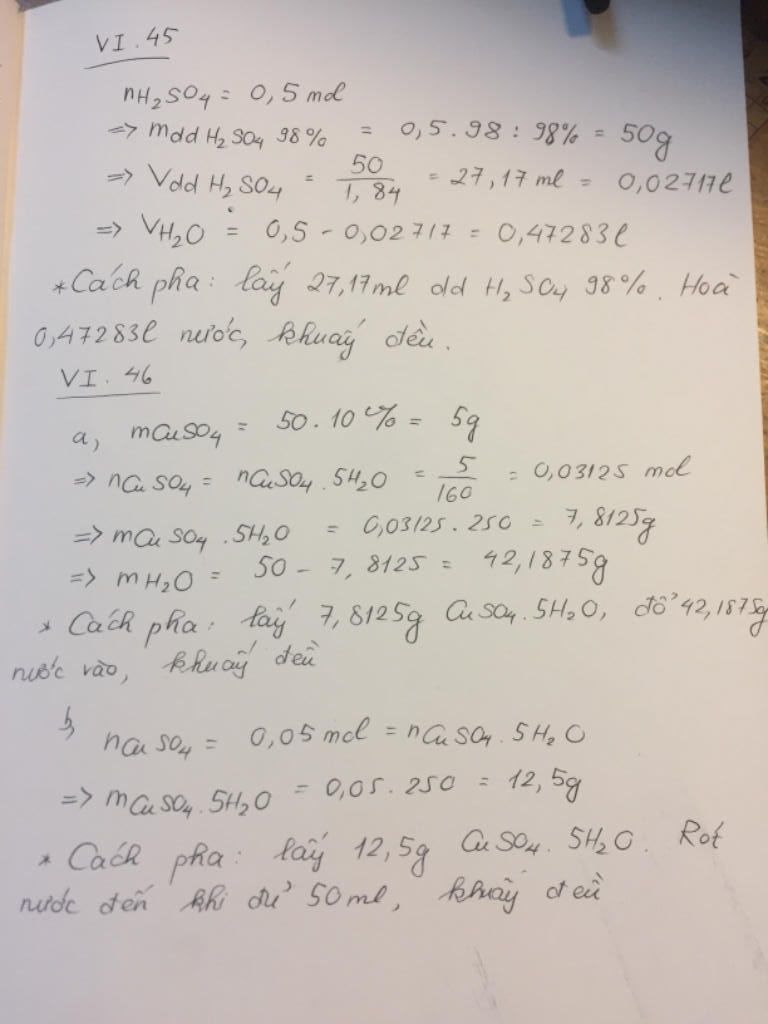 VI.45
nH₂SO₄ = 0,5 mol
=> mdd H₂SO₄ 98% = 0,5 . 98 : 98% = 50g
=> Vdd H₂SO₄ = 50/1,84 = 27,17 ml = 0,02717l
=> VH₂O = 0,5 - 0,02717 = 0,47283l
* Cách pha: lấy 27,17ml dd H₂SO₄ 98%. Hoà
0,47283l nước, khuấy đều.
VI.46
a, mCuSO₄ = 50 . 10% = 5g
=> nCuSO₄ = nCuSO₄.5H₂O = 5/160 = 0,03125 mol
=> mCuSO₄.5H₂O = 0,03125 . 250 = 7,8125g
=> mH₂O = 50 - 7,8125 = 42,1875g
* Cách pha: lấy 7,8125g CuSO₄.5H₂O, đổ 42,1875g
nước vào, khuấy đều
b, nCuSO₄ = 0,05 mol = nCuSO₄.5H₂O
=> mCuSO₄.5H₂O = 0,05 . 250 = 12,5g
* Cách pha: lấy 12,5g CuSO₄.5H₂O. Rót
nước đến khi đủ 50ml, khuấy đều